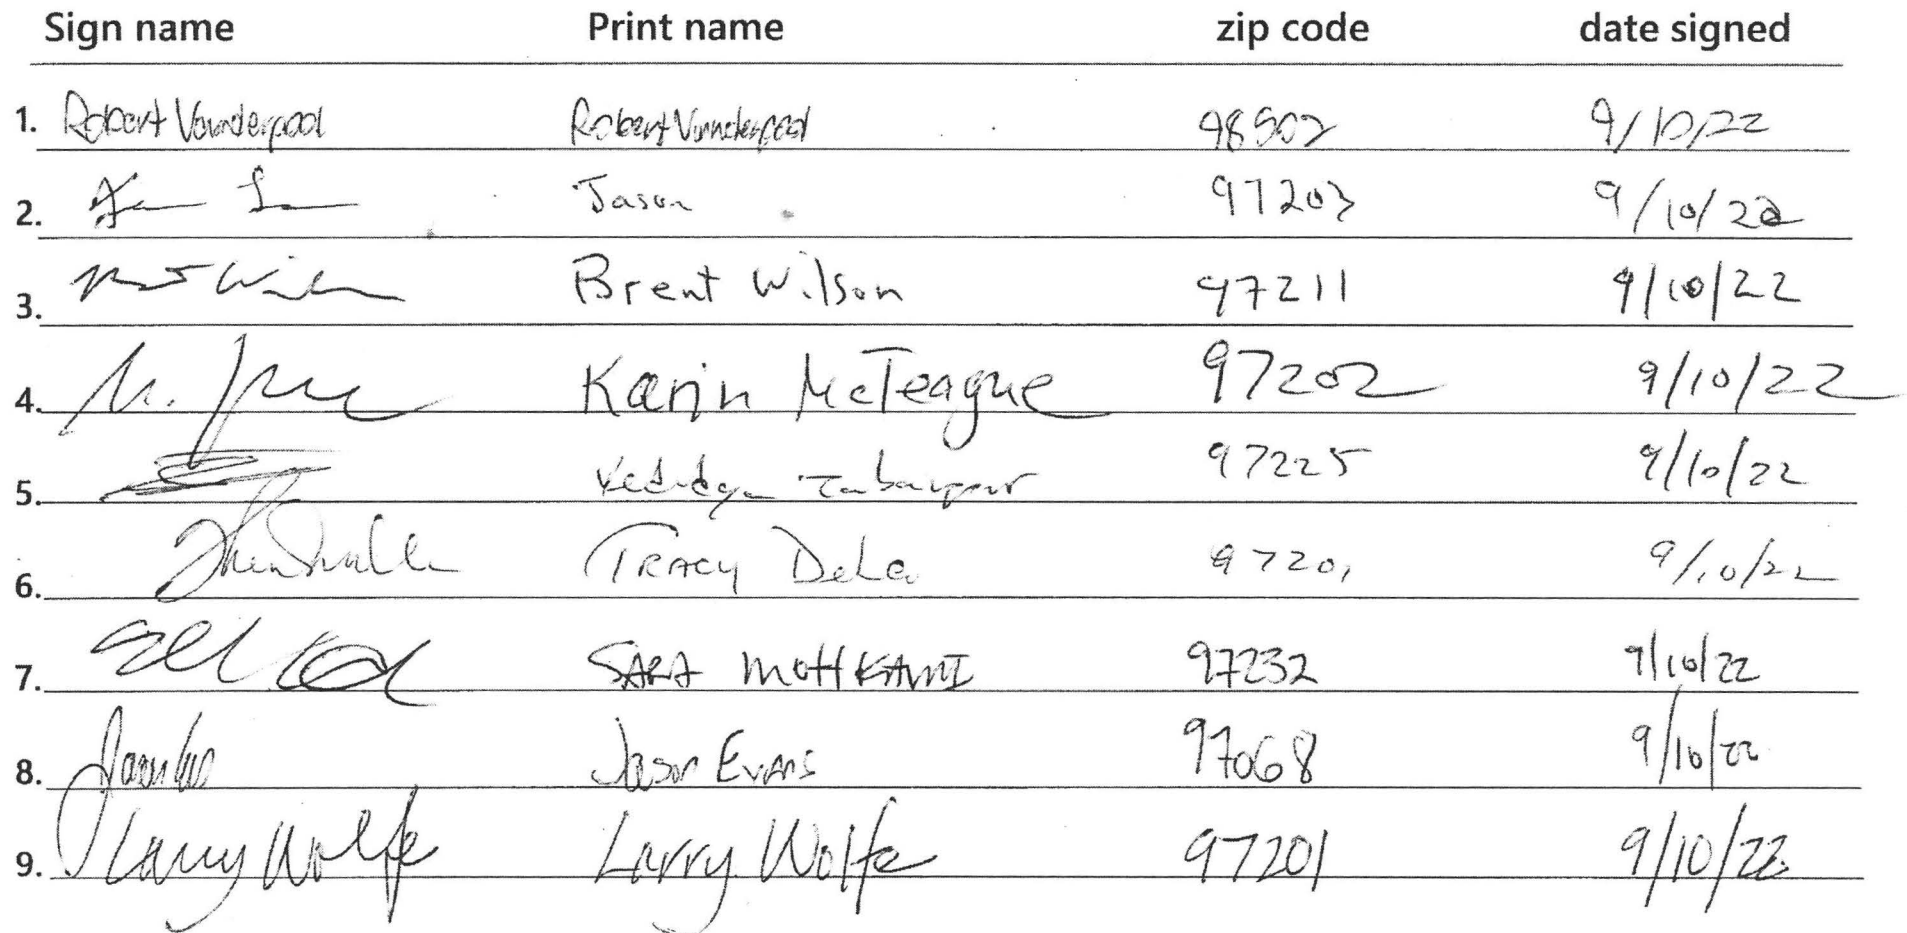 Sign name Print name zip code date signed
1. Robert Vanderpool Robert Vanderpool 98502 9/10/22
2. Jason 97203 9/10/22
3. Wilson Brent Wilson 97211 9/10/22
4. M. Karin McTeague 97202 9/10/22
5. 97225 9/10/22
6. TRACY 97201 9/10/22
7. SARA 97232 9/10/22
8. Jason Evans 97068 9/10/22
9. Larry Wolfe Larry Wolfe 97201 9/10/22